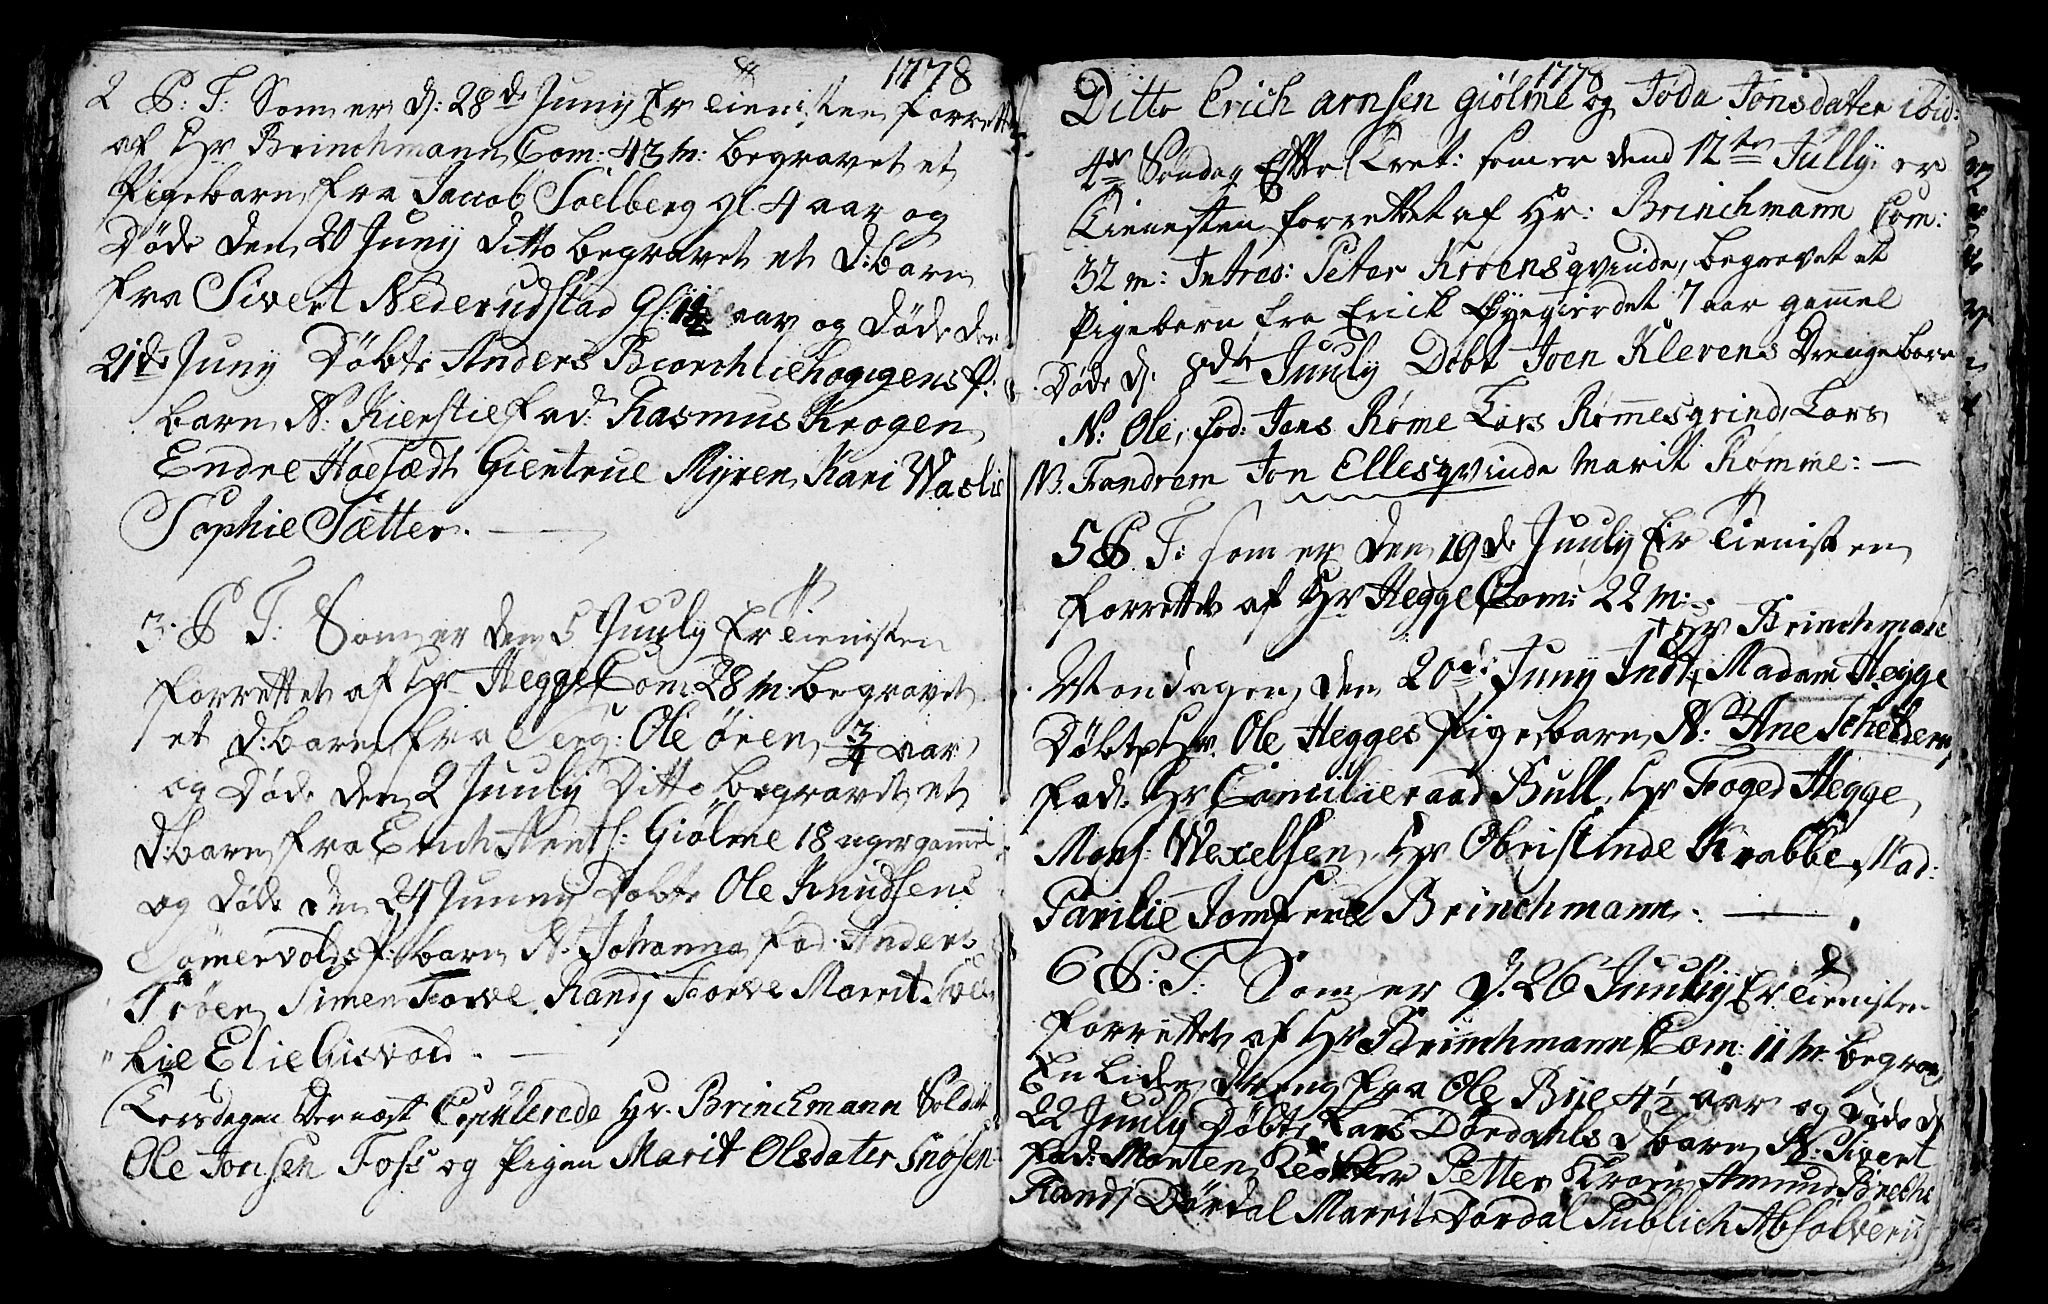 1778
2 P: T: Som er d: 28de Junij Er Tienisten forrettet
af Hr Brinchmann Com: 43 m: begravet et
Pigebarn fra Jacob Soelberg gl. 4 aar og
Døde den 20 Junij Ditto begravet et D:barn
fra Sivert Nederudstad gl: aar og Døde den
21de Junij Døbte Anders Biørchliehougens P:
barn N. Kierstie fad: Rasmus Krogen
Endre Hoesædt Giertrue Myren Kari Waslie
Sophie Sætter.
3. P T: Som er den 5 Juuly Er Tienisten
forrettet af Hr Hegge Com: 28 m: begravet
et D:barn fra Serg: Ole Ören 3/4 aar
og Døde den 2 Juuly Ditto begravet et
D:barn fra Erich Arnts: Giølme 18 uger gammel
og døde den Junij Døbte Ole Knudsens
Somervolds P: barn N. Johanna fad. Anders
Trøen Simen Forve Randj Forve Marrit
lie Elie Gisvold.
Torsdagen Dernæst Copulerede Hr. Brinchmann Soldat
Ole Jonsen Foss og Pigen Marit Olsdater Snøsen
1778
Ditto Erich Arnsen Giølme og Joda Jonsdatter ibid:
4de Søndag Efter Tret: som er dend 12te Jully er
Tienesten forrettet af Hr: Brinchmann Com:
32 m: Intres: Peter Kroens qvinde, begravet et
Pigebarn fra Erick Øyegierdet 7 aar gammel
Døde d. 8de Juuly Døbt Joen Klevens Drengebarn
N: Ole, fad: Jons Røme Lars Rømmesgrind, Lars
Fandrem Jon Ellesqvinde Marit Rømme:
5 P T: som er den 19de Juuly Er Tienisten
forrettet af Hr Hegge Com: 22 m:
† Hr Brinchman
Mondagen den 20de Juny Indt: † Madam Hegge
Døbt Hr. Ole Hegges Pigebarn N: Ane
fad: Hr Camilieraad Bull, Hr Foged Hegge
Mons: Wexelsen, Hr Obristinde Krabbe, Mad:
Parilie Jomfrue Brinchmann.
6 P: T: Som er d. 26 Juuly Er Tienisten
forrettet af Hr Brinchmann Com: 11 m. begrav
En Liden Dreng fra Ole Bye 4 1/2 aar og Døde d
22 Juuly Døbt Lars Dørdahls D barn N: Sivert
fad: Morten Petter Kroen Amund
Randj Dørdal Marrit Dørdal Publich Absolverit